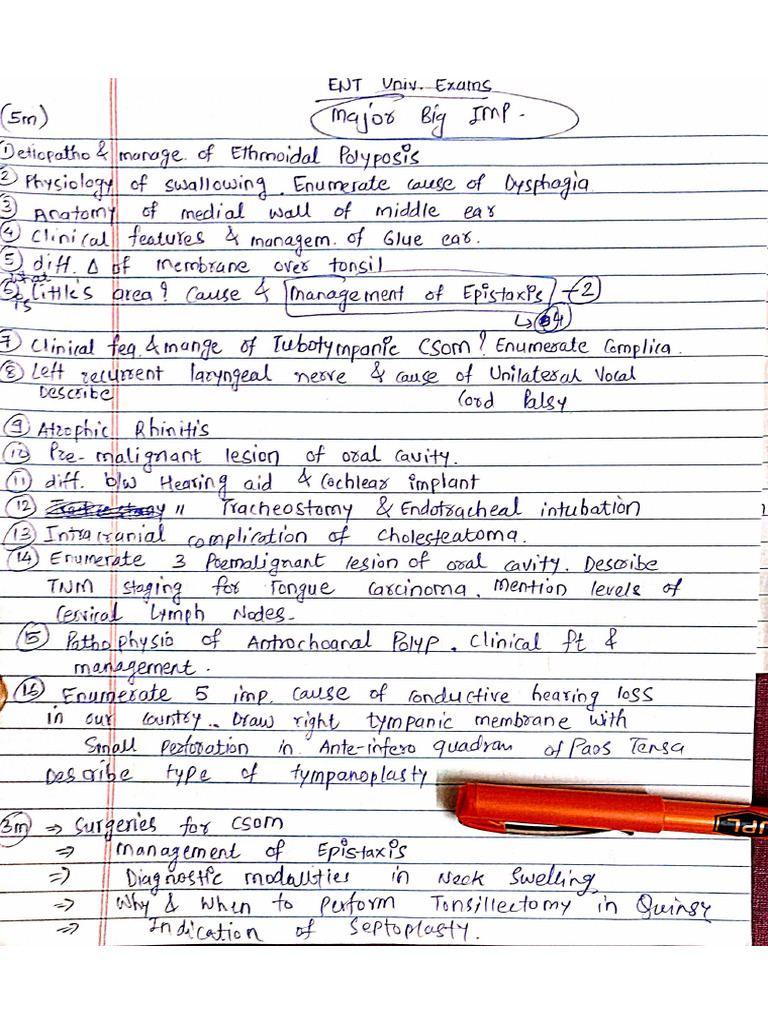 ENT Univ. Exams
(5m) Major Big IMP.
① etiopatho & manage. of Ethmoidal Polyposis
② Physiology of swallowing. Enumerate cause of Dysphagia
③ Anatomy of medial wall of middle ear
④ Clinical features & managem. of Glue ear.
⑤ diff. Δ of membrane over tonsil
⑥ what is Little's area? Cause & Management of Epistaxis -②
↳ ④
⑦ Clinical feq. & mange of Tubotympanic CSOM? Enumerate Complica.
⑧ Left recurrent laryngeal nerve & cause of Unilateral Vocal
Describe Cord Palsy
⑨ Atrophic Rhinitis
⑩ Pre-malignant lesion of oral cavity.
⑪ diff. b/w Hearing aid & Cochlear implant
⑫ " Tracheostomy & Endotracheal intubation
⑬ Intracranial complication of Cholesteatoma.
⑭ Enumerate 3 Premalignant lesion of oral cavity. Describe
TNM staging for Tongue Carcinoma. Mention levels of
Cervical Lymph Nodes.
⑮ Pathophysio of Antrochoanal Polyp. Clinical ft &
management.
⑯ Enumerate 5 imp. cause of conductive hearing loss
in our country. Draw right tympanic membrane with
Small Perforation in Ante-infero quadran of Pars Tensa
Describe type of tympanoplasty
3m ⇒ Surgeries for CSOM
⇒ Management of Epistaxis
⇒ Diagnostic modalities in Neck Swelling
⇒ Why & When to perform Tonsillectomy in Quinsy
⇒ Indication of Septoplasty.